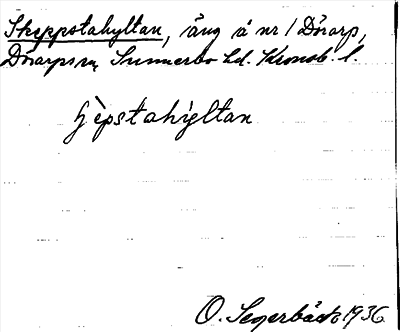 Skeppstahyltan, äng å nr 1 Dörarp,
Dörarps sn, Sunnerbo hd. Kronob. l.
O. Segerbäck 1936